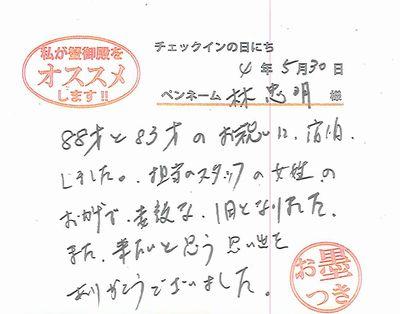 私が蟹御殿を
オススメ
します!!
チェックインの日にち
4年5月30日
ペンネーム 林忠明 様
88才と83才のお祝いに、宿泊
しました。担当のスタッフの女性の
おかげで、素敵な、1日となりました。
また、来たいと思う思い出を
ありがとうございました。
お墨
つき